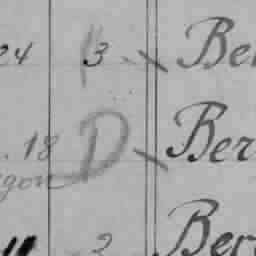 24 3 Be
. 18 D Ber
gon
2 Ber